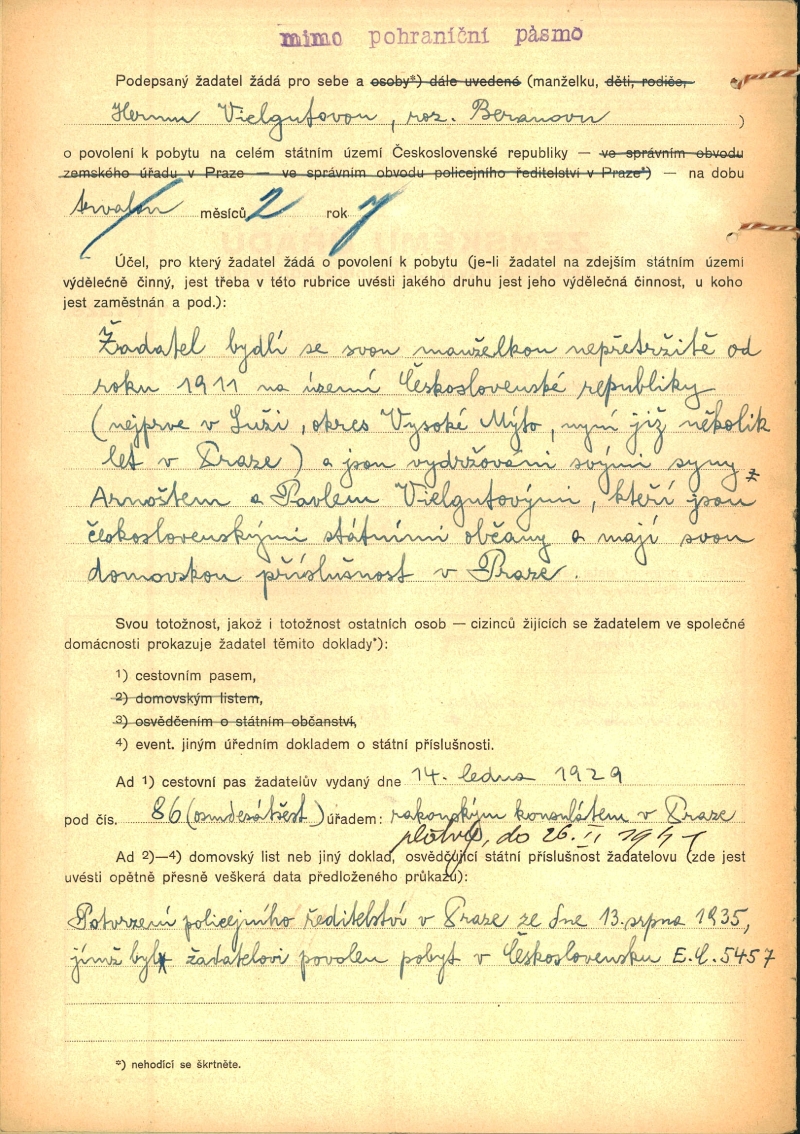 mimo pohraniční pásmo
Podepsaný žadatel žádá pro sebe a osoby*) dále uvedené (manželku, děti, rodiče,
Hermu Vielgutovou, roz. Beranovu )
o povolení k pobytu na celém státním území Československé republiky — ve správním obvodu
zemského úřadu v Praze — ve správním obvodu policejního ředitelství v Praze*) — na dobu
trvalou měsíců 2 rok y
Účel, pro který žadatel žádá o povolení k pobytu (je-li žadatel na zdejším státním území
výdělečně činný, jest třeba v této rubrice uvésti jakého druhu jest jeho výdělečná činnost, u koho
jest zaměstnán a pod.):
Žadatel bydlí se svou manželkou nepřetržitě od
roku 1911 na území Československé republiky
(nejprve v Luži, okres Vysoké Mýto, nyní již několik
let v Praze) a jsou vydržováni svými syny
Arnoštem a Pavlem Vielgutovými, kteří jsou
československými státními občany a mají svou
domovskou příslušnost v Praze.
Svou totožnost, jakož i totožnost ostatních osob — cizinců žijících se žadatelem ve společné
domácnosti prokazuje žadatel těmito doklady*):
1) cestovním pasem,
2) domovským listem,
3) osvědčením o státním občanství,
4) event. jiným úředním dokladem o státní příslušnosti.
Ad 1) cestovní pas žadatelův vydaný dne 14. ledna 1929
pod čís. 86 (osmdesátšest) úřadem: rakouským konsulátem v Praze
do 26. II
Ad 2)—4) domovský list neb jiný doklad, osvědčující státní příslušnost žadatelovu (zde jest
uvésti opětně přesně veškerá data předloženého průkazu):
Potvrzení policejního ředitelství v Praze ze dne 13. srpna 1935,
jímž byl žadatelovi povolen pobyt v Československu E.Č. 5457
*) nehodící se škrtněte.